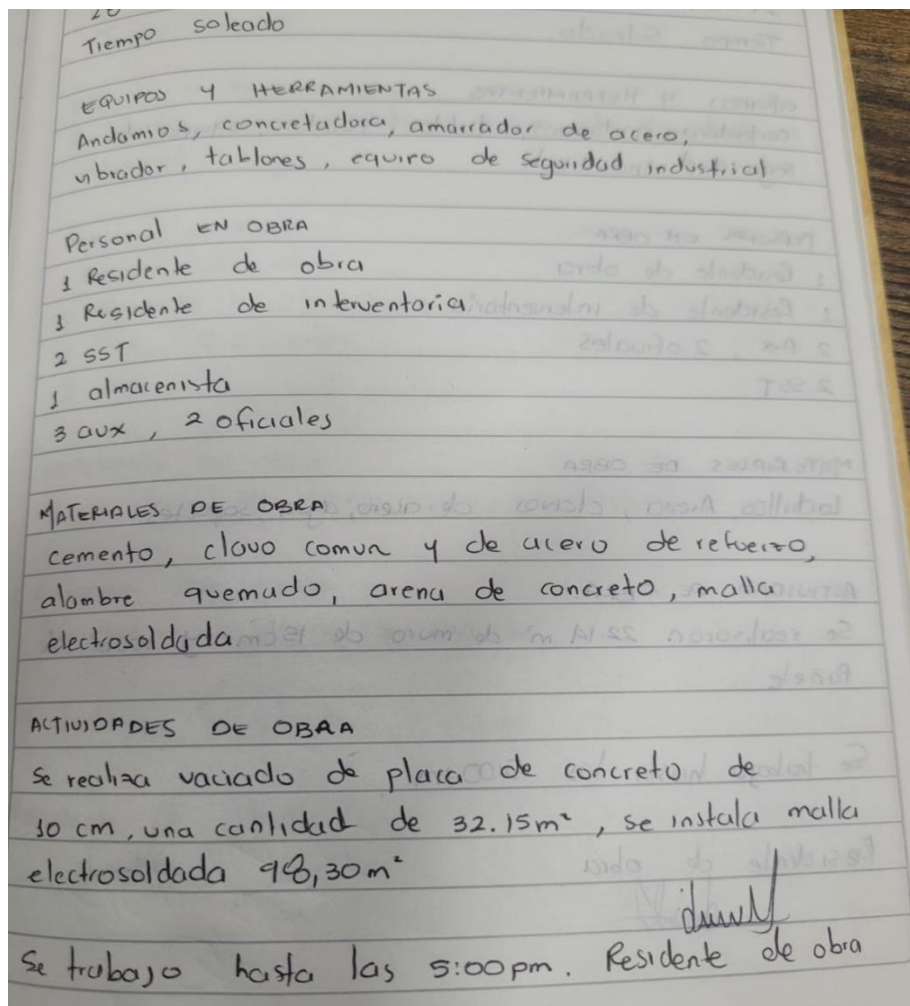 Tiempo soleado
EQUIPOS Y HERRAMIENTAS
Andamios, concretadora, amarrador de acero,
vibrador, tablones, equiro de seguridad industrial
Personal EN OBRA
1 Residente de obra
1 Residente de interventoria
2 SST
1 almacenista
3 aux, 2 oficiales
MATERIALES DE OBRA
cemento, clavo comun y de acero de refuerzo,
alambre quemado, arena de concreto, malla
electrosoldada
ACTIVIDADES DE OBRA
Se realiza vaciado de placa de concreto de
10 cm, una cantidad de 32.15m², se instala malla
electrosoldada 98,30m²
Se trabajo hasta las 5:00pm. Residente de obra